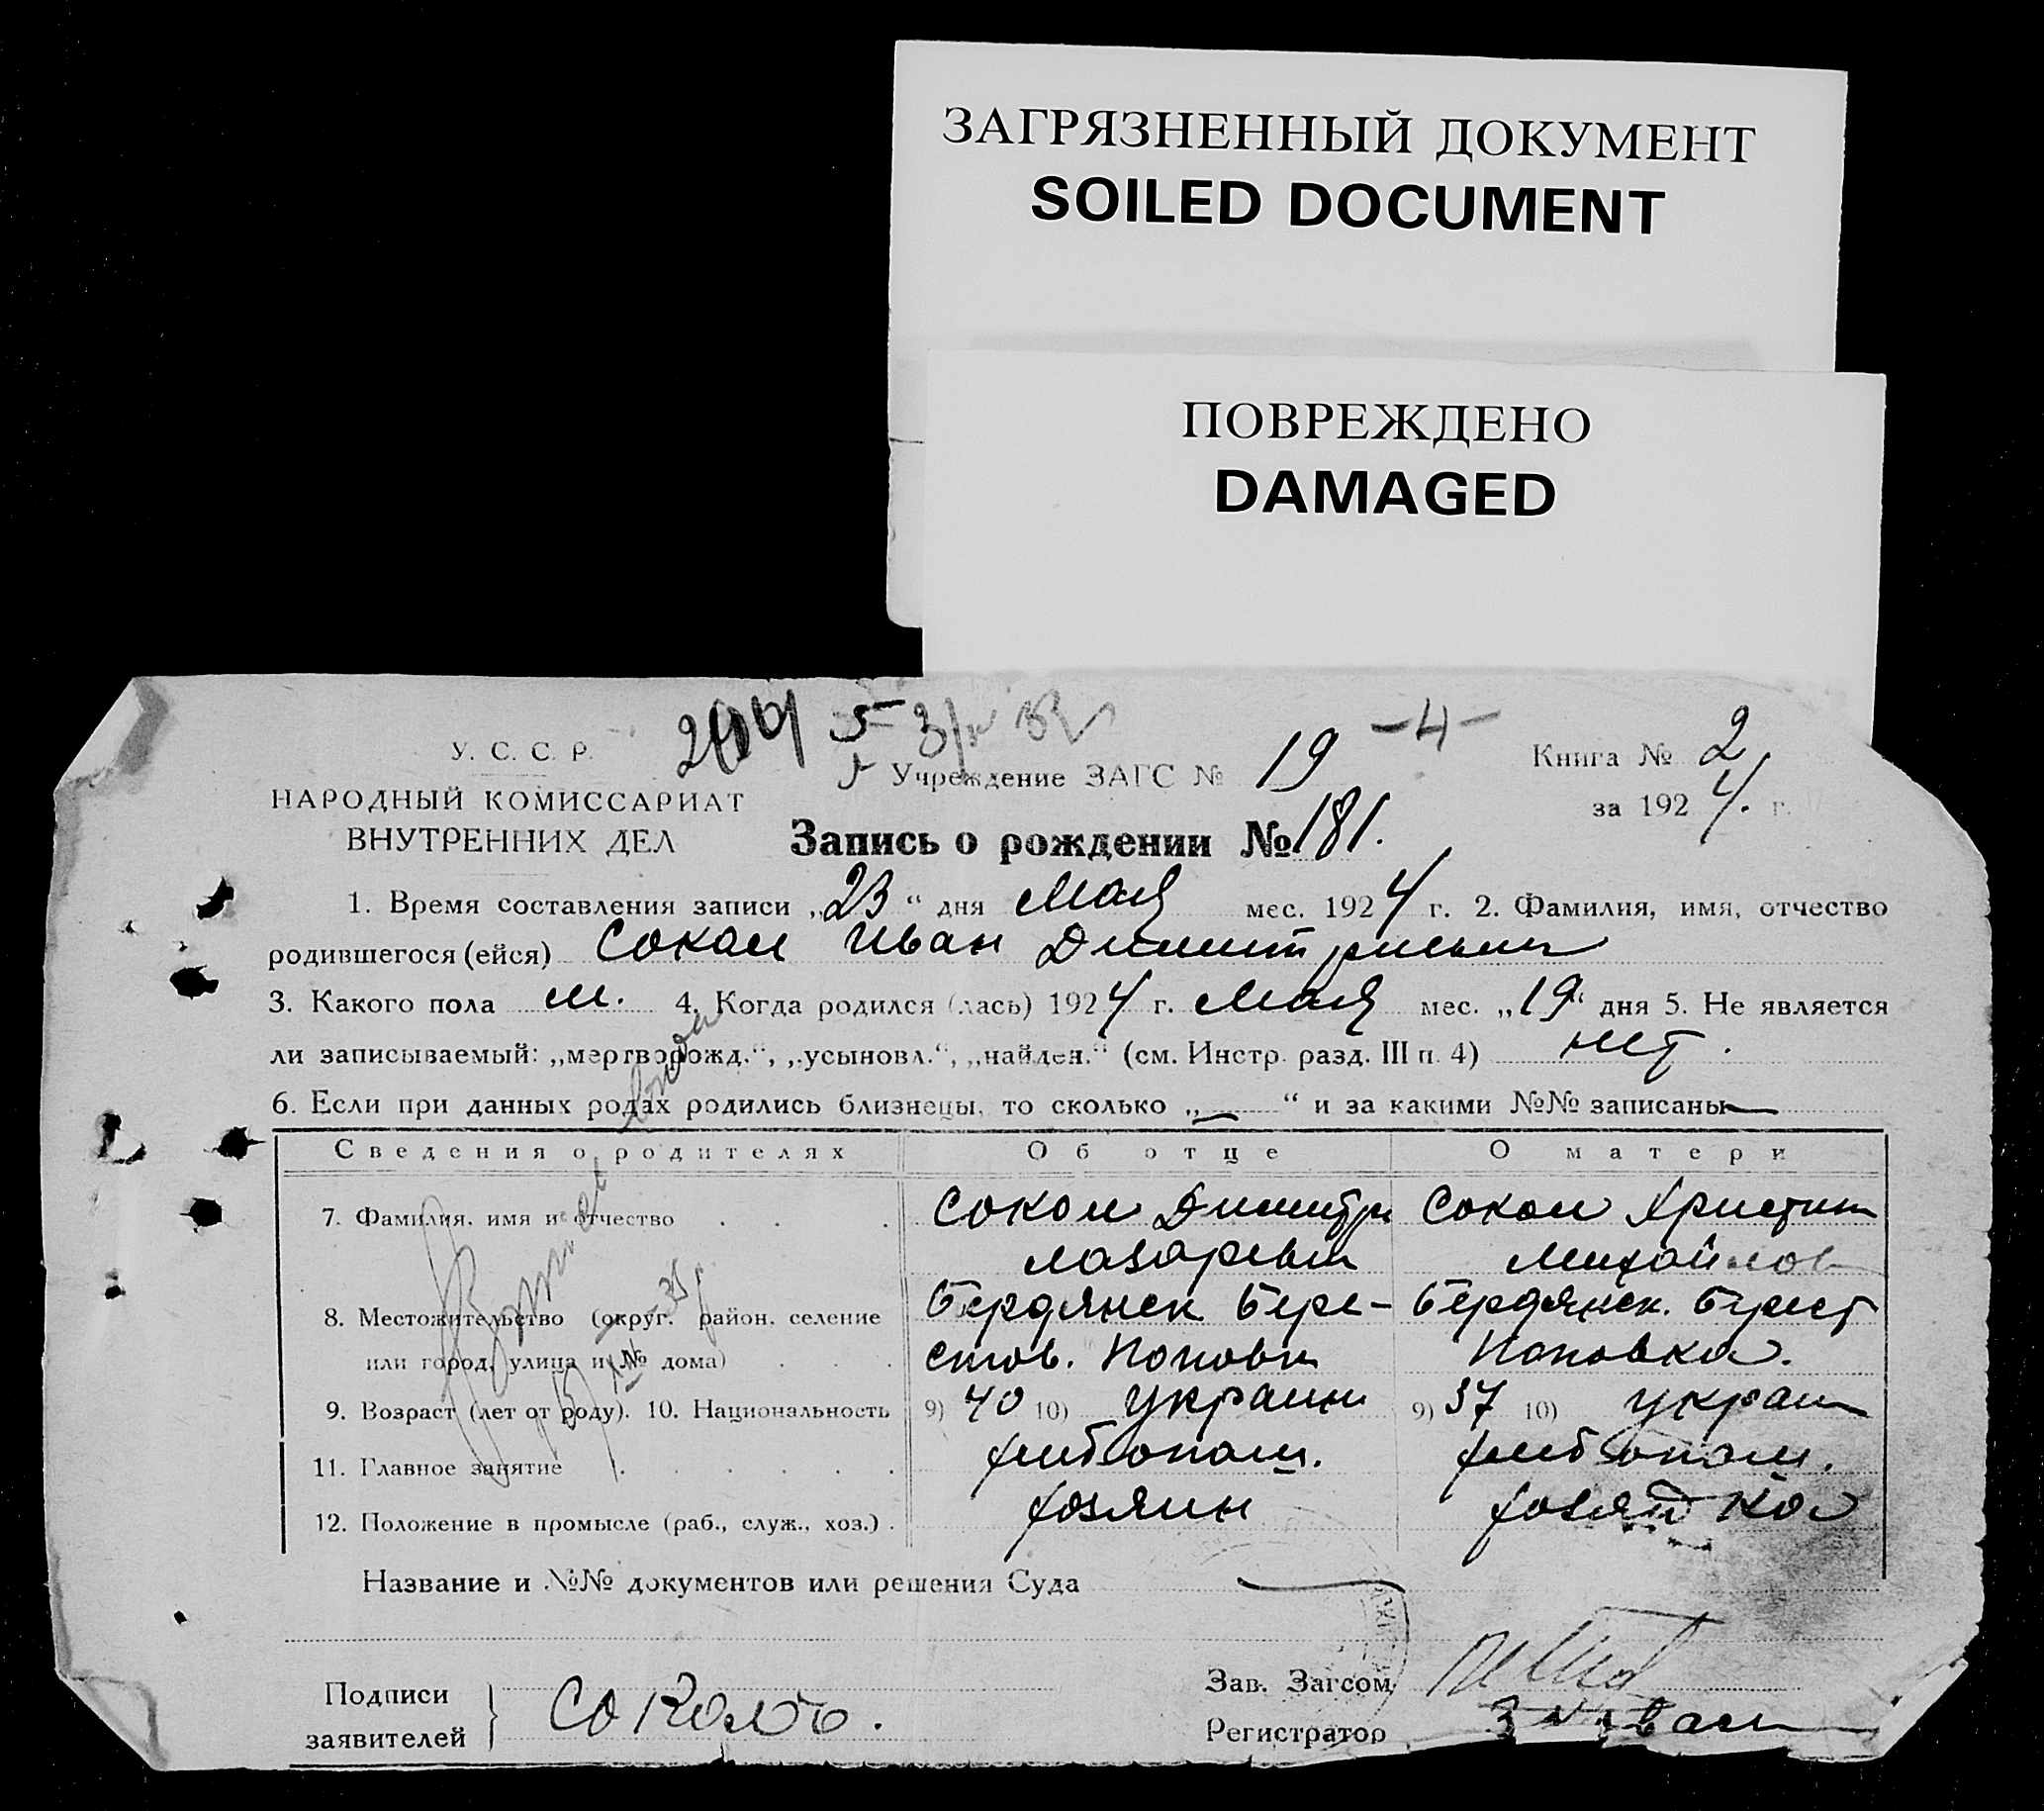 ЗАГРЯЗНЕННЫЙ ДОКУМЕНТ
SOILED DOCUMENT
ПОВРЕЖДЕНО
DAMAGED
5
- 4 -
У. С. С. Р.
НАРОДНЫЙ КОМИССАРИАТ
ВНУТРЕННИХ ДЕЛ
Учреждение ЗАГС № 19
Книга № 2
за 1924. г.
Запись о рождении № 181.
1. Время составления записи „23“ дня Мая мес. 1924 г. 2. Фамилия, имя, отчество
родившегося (ейся) Сокол Иван Димитриевич
3. Какого пола м. 4. Когда родился (лась) 1924 г. Мая мес. „19“ дня 5. Не является
ли записываемый: „мертворожд.“, „усыновл.“, „найден.“ (см. Инстр. разд. III п. 4) нет.
6. Если при данных родах родились близнецы, то сколько „—“ и за какими №№ записаны —
Сведения о родителях Об отце О матери
7. Фамилия, имя и отчество Сокол Димитри Сокол Христин
Лазаревич Михайлов
8. Местожительство (округ. район, селение Бердянск Бере- Бердянск. Берест
или город, улица и № дома) стов. Поповк Поповка.
9. Возраст (лет от роду). 10. Национальность 9) 40 10) украин 9) 37 10) украин
11. Главное занятие хлебопаш. хлебопаш.
12. Положение в промысле (раб., служ., хоз.) хозяин хозяйка
Название и №№ документов или решения Суда
Подписи
заявителей
Соколъ.
Зав. Загсом
Регистратор